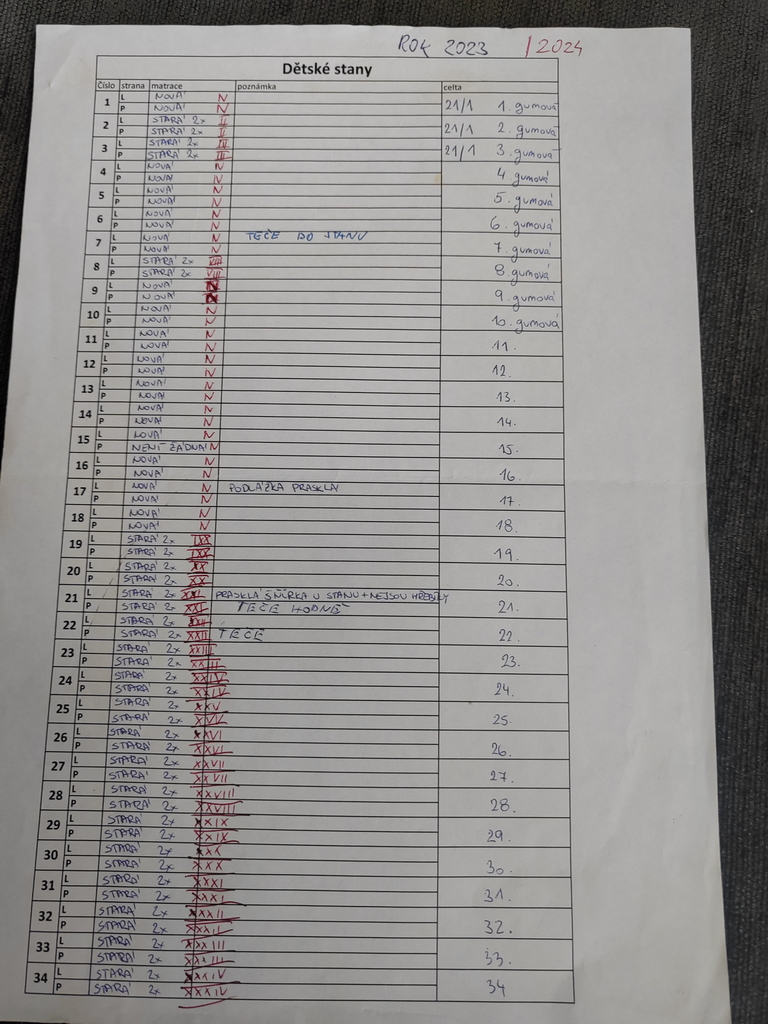 ROK 2023 /2024
Dětské stany
Číslo strana matrace poznámka celta
1 L NOVÁ N 21/1 1. gumová
P NOVÁ N
2 L STARÁ 2x II 21/1 2. gumová
P STARÁ 2x II
3 L STARÁ 2x III 21/1 3. gumová
P STARÁ 2x III
4 L NOVÁ N 4 gumová
P NOVÁ N
5 L NOVÁ N 5. gumová
P NOVÁ N
6 L NOVÁ N 6. gumová
P NOVÁ N
7 L NOVÁ N TEČE DO STANU 7. gumová
P NOVÁ N
8 L STARÁ 2x VIII 8. gumová
P STARÁ 2x VIII
9 L NOVÁ N 9. gumová
P NOVÁ N
10 L NOVÁ N 10. gumová
P NOVÁ N
11 L NOVÁ N 11.
P NOVÁ N
12 L NOVÁ N 12.
P NOVÁ N
13 L NOVÁ N 13.
P NOVÁ N
14 L NOVÁ N 14.
P NOVÁ N
15 L NOVÁ N 15.
P NENÍ ŽÁDNÁ N
16 L NOVÁ N 16.
P NOVÁ N
17 L NOVÁ N PODLÁŽKA PRASKLÁ 17.
P NOVÁ N
18 L NOVÁ N 18.
P NOVÁ N
19 L STARÁ 2x IXX 19.
P STARÁ 2x IXX
20 L STARÁ 2x XX 20.
P STARÁ 2x XX
21 L STARÁ 2x XXI PRASKLÁ ŠŇŮRKA U STANU + NEJSOU HŘEBÍKY 21.
P STARÁ 2x XXI TEČE HODNĚ
22 L STARÁ 2x XXII 22.
P STARÁ 2x XXII TEČE
23 L STARÁ 2x XXIII 23.
P STARÁ 2x XXIII
24 L STARÁ 2x XXIV 24.
P STARÁ 2x XXIV
25 L STARÁ 2x XXV 25.
P STARÁ 2x
26 L STARÁ 2x XXVI 26.
P STARÁ 2x XXVI
27 L STARÁ 2x XXVII 27.
P STARÁ 2x XXVII
28 L STARÁ 2x XXVIII 28.
P STARÁ 2x XXVIII
29 L STARÁ 2x XXIX 29.
P STARÁ 2x XXIX
30 L STARÁ 2x XXX 30.
P STARÁ 2x XXX
31 L STARÁ 2x XXXI 31.
P STARÁ 2x XXXI
32 L STARÁ 2x XXXII 32.
P STARÁ 2x XXXII
33 L STARÁ 2x XXXIII 33.
P STARÁ 2x XXXIII
34 L STARÁ 2x XXXIV 34
P STARÁ 2x XXXIV